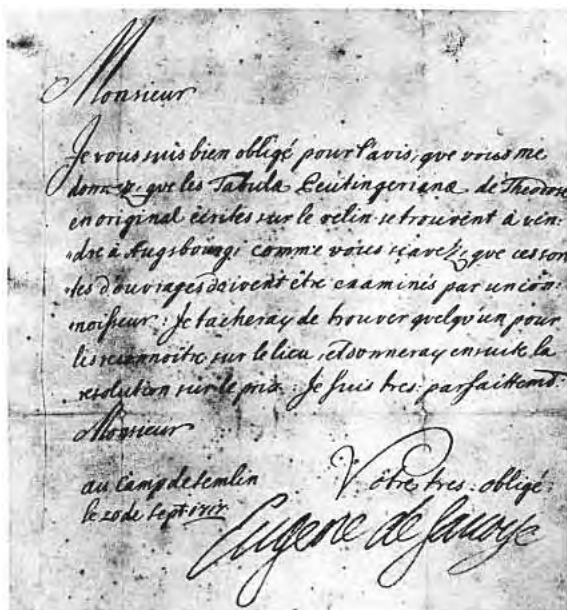 Monsieur
Je vous suis bien obligé pour l'avis, que vous me
donnez, que les Tabulæ Peutingerianæ de Theodose
en original écrites sur le velin se trouvent à ven:
:dre à Augsbourg; comme vous sçavez, que ces sor:
:tes d'ouvrages doivent être examinés par un con:
:noisseur: Je tacheray de trouver quelqu'un pour
les reconnoitre sur le lieu, et donneray ensuite la
resolution sur le prix. Je suis tres-parfaittemt.
Monsieur
au Camp de Semlin
le 20 de Sept
Vôtre tres-obligé
Eugene de Savoye